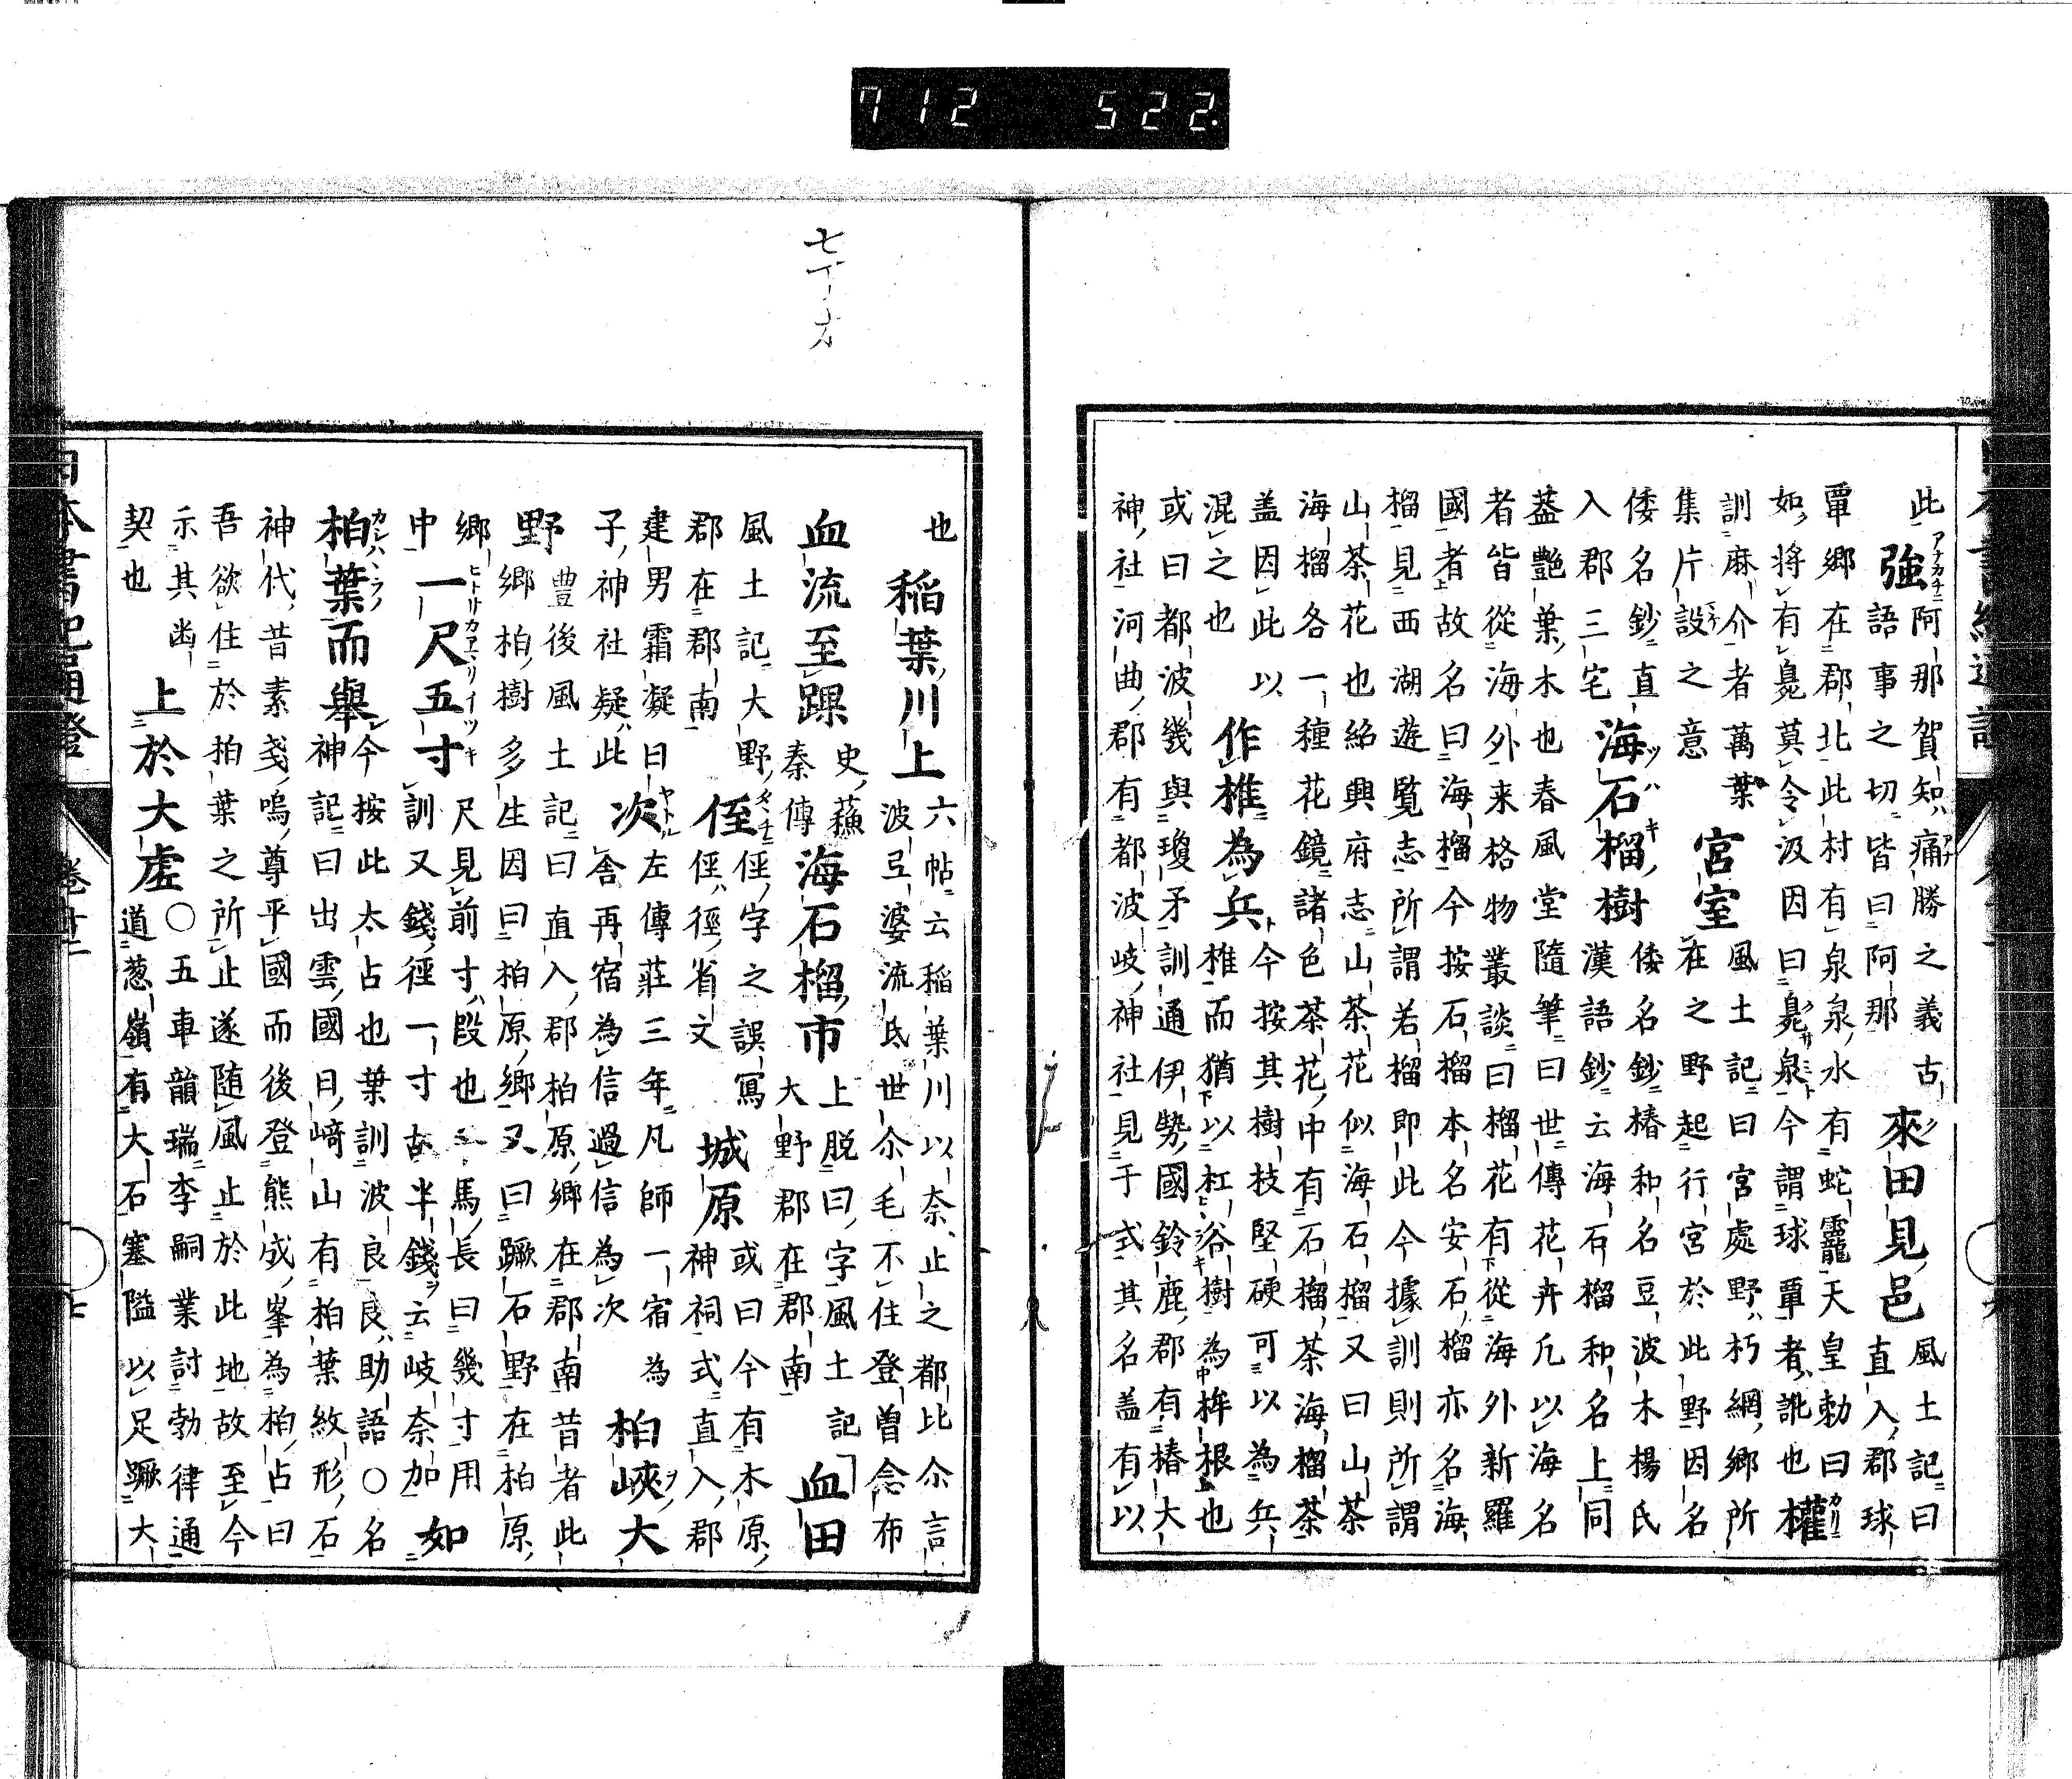 此
強
阿那賀知ハ痛勝之義古
語事之切皆曰阿那
來田見邑
風土記曰
直入郡球
覃郷在郡北此村有泉泉水有蛇龗天皇勅曰
如將有臰莫令汲因曰臰泉今謂球覃者訛也
權
訓麻介者萬葉
集片設之意
宮室
風土記曰宮處野朽網郷所
在之野起行宮於此野因名
倭名鈔直
入郡三宅
海石榴樹
倭名鈔椿和名豆波木楊氏
漢語鈔云海石榴和名上同
葢艷葉木也春風堂隨筆曰世傳花卉凢以海名
者皆從海外来格物叢談曰榴花有從海外新羅
國者故名曰海榴今按石榴本名安石榴亦名海
榴見西湖遊覧志所謂若榴即此今據訓則所謂
山茶花也紹興府志山茶花似海石榴又曰山茶
海榴各一種花鏡諸色茶花中有石榴茶海榴茶
盖因此以
混之也
作椎為兵
今按其樹枝堅硬可以為兵
椎而猶以杠谷樹為桙根也
或曰都波幾與瓊矛訓通伊勢國鈴鹿郡有椿大
神社河曲郡有都波岐神社見于式其名盖有以
七丁オ
也
稲葉川上
六帖云稲葉川以奈止之都比尒言
波弖婆流氐世尒毛不住登曽念布
血流至踝
史蘓
秦傳
海石榴市
上脱曰字風土記
大野郡在郡南
血田
風土記大野
郡在郡南
侄
俓字之誤寫
俓ハ徑省文
城原
或曰今有木原
神祠式直入郡
建男霜凝日
子神社疑此
次
左傳莊三年凡師一宿為
舎再宿為信過信為次
柏峽大
野
豊後風土記曰直入郡柏原郷在郡南昔者此
郷柏樹多生因曰柏原郷又曰蹶石野在柏原
郷
中
一尺五寸
尺見前寸ハ段也馬長曰幾寸用
訓又錢徑一寸古半錢ヲ云岐奈加
如
柏葉而舉
今按此太占也葉訓波良良ハ助語〇名
神記曰出雲國日﨑山有柏葉紋形石
神代昔素戔嗚尊平國而後登熊成峯為柏占曰
吾欲住於柏葉之所止遂随風止於此地故至今
示其凾
契也
上於大虚
〇五車韻瑞李嗣業討勃律通
道葱嶺有大石塞隘以足蹶大
日本書紀通證
卷廿二
七
712 522.